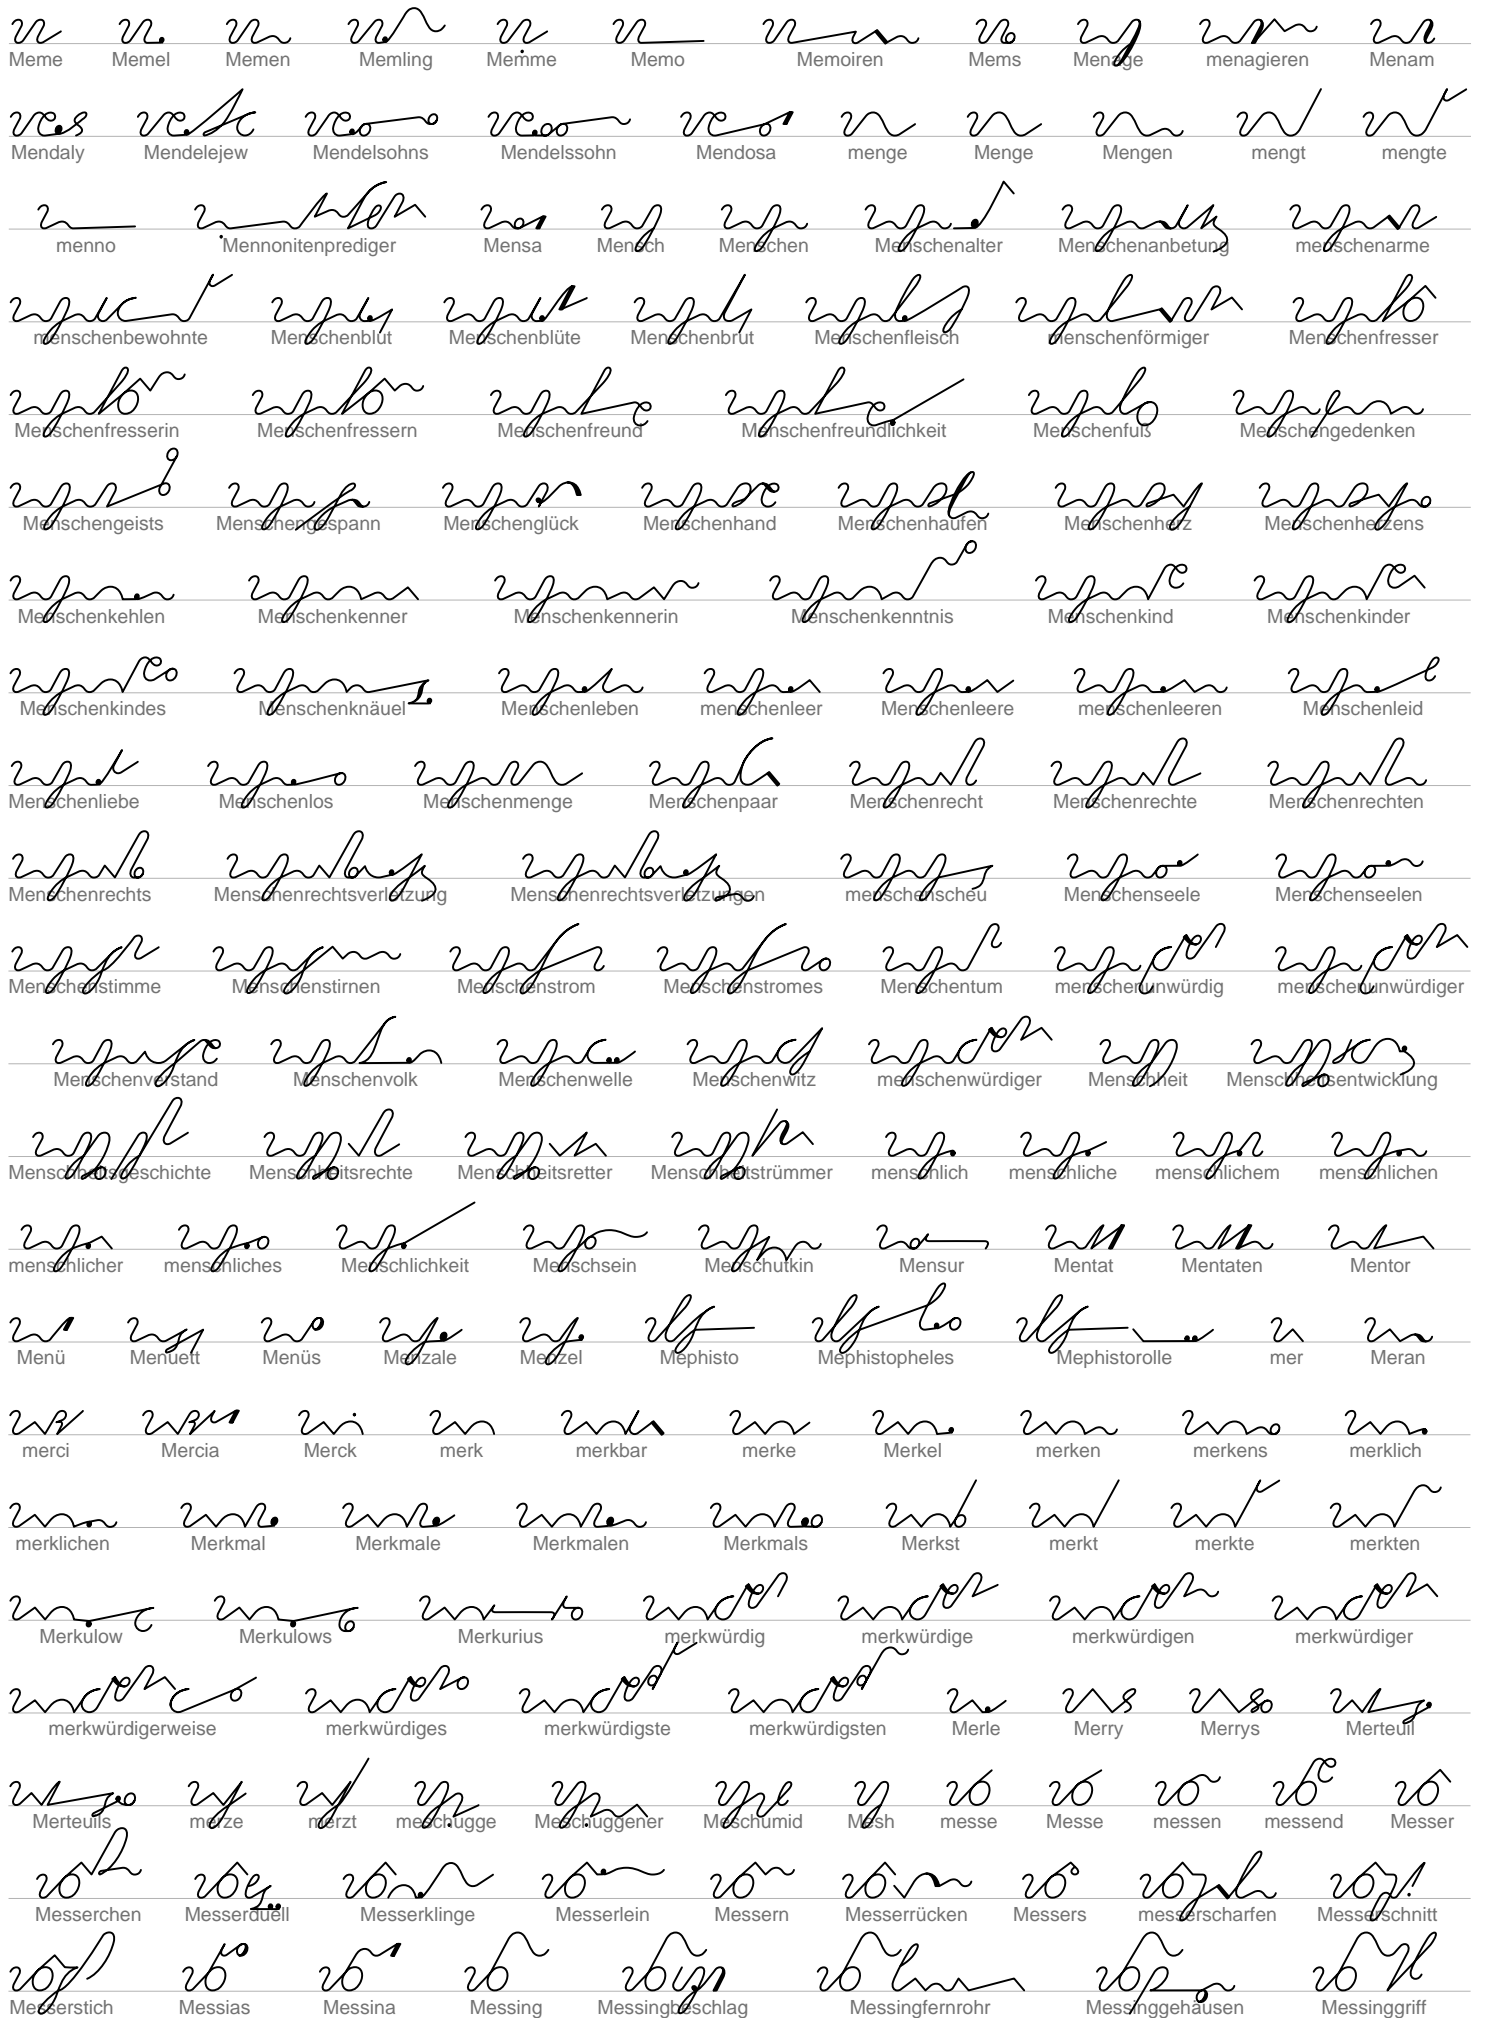 Meme Memel Memen Memling Memme Memo Memoiren Mems Menage menagieren Menam
Mendaly Mendelejew Mendelsohns Mendelssohn Mendosa menge Menge Mengen mengt mengte
menno Mennonitenprediger Mensa Mensch Menschen Menschenalter Menschenanbetung menschenarme
menschenbewohnte Menschenblut Menschenblüte Menschenbrut Menschenfleisch menschenförmiger Menschenfresser
Menschenfresserin Menschenfressern Menschenfreund Menschenfreundlichkeit Menschenfuß Menschengedenken
Menschengeists Menschengespann Menschenglück Menschenhand Menschenhaufen Menschenherz Menschenherzens
Menschenkehlen Menschenkenner Menschenkennerin Menschenkenntnis Menschenkind Menschenkinder
Menschenkindes Menschenknäuel Menschenleben menschenleer Menschenleere menschenleeren Menschenleid
Menschenliebe Menschenlos Menschenmenge Menschenpaar Menschenrecht Menschenrechte Menschenrechten
Menschenrechts Menschenrechtsverletzung Menschenrechtsverletzungen menschenscheu Menschenseele Menschenseelen
Menschenstimme Menschenstirnen Menschenstrom Menschenstromes Menschentum menschenunwürdig menschenunwürdiger
Menschenverstand Menschenvolk Menschenwelle Menschenwitz menschenwürdiger Menschheit Menschheitsentwicklung
Menschheitsgeschichte Menschheitsrechte Menschheitsretter Menschheitstrümmer menschlich menschliche menschlichem menschlichen
menschlicher menschliches Menschlichkeit Menschsein Menschutkin Mensur Mentat Mentaten Mentor
Menü Menuett Menüs Menzale Menzel Mephisto Mephistopheles Mephistorolle mer Meran
merci Mercia Merck merk merkbar merke Merkel merken merkens merklich
merklichen Merkmal Merkmale Merkmalen Merkmals Merkst merkt merkte merkten
Merkulow Merkulows Merkurius merkwürdig merkwürdige merkwürdigen merkwürdiger
merkwürdigerweise merkwürdiges merkwürdigste merkwürdigsten Merle Merry Merrys Merteuil
Merteuils merze merzt meschugge Meschuggener Meschumid Mesh messe Messe messen messend Messer
Messerchen Messerduell Messerklinge Messerlein Messern Messerrücken Messers messerscharfen Messerschnitt
Messerstich Messias Messina Messing Messingbeschlag Messingfernrohr Messinggehäusen Messinggriff